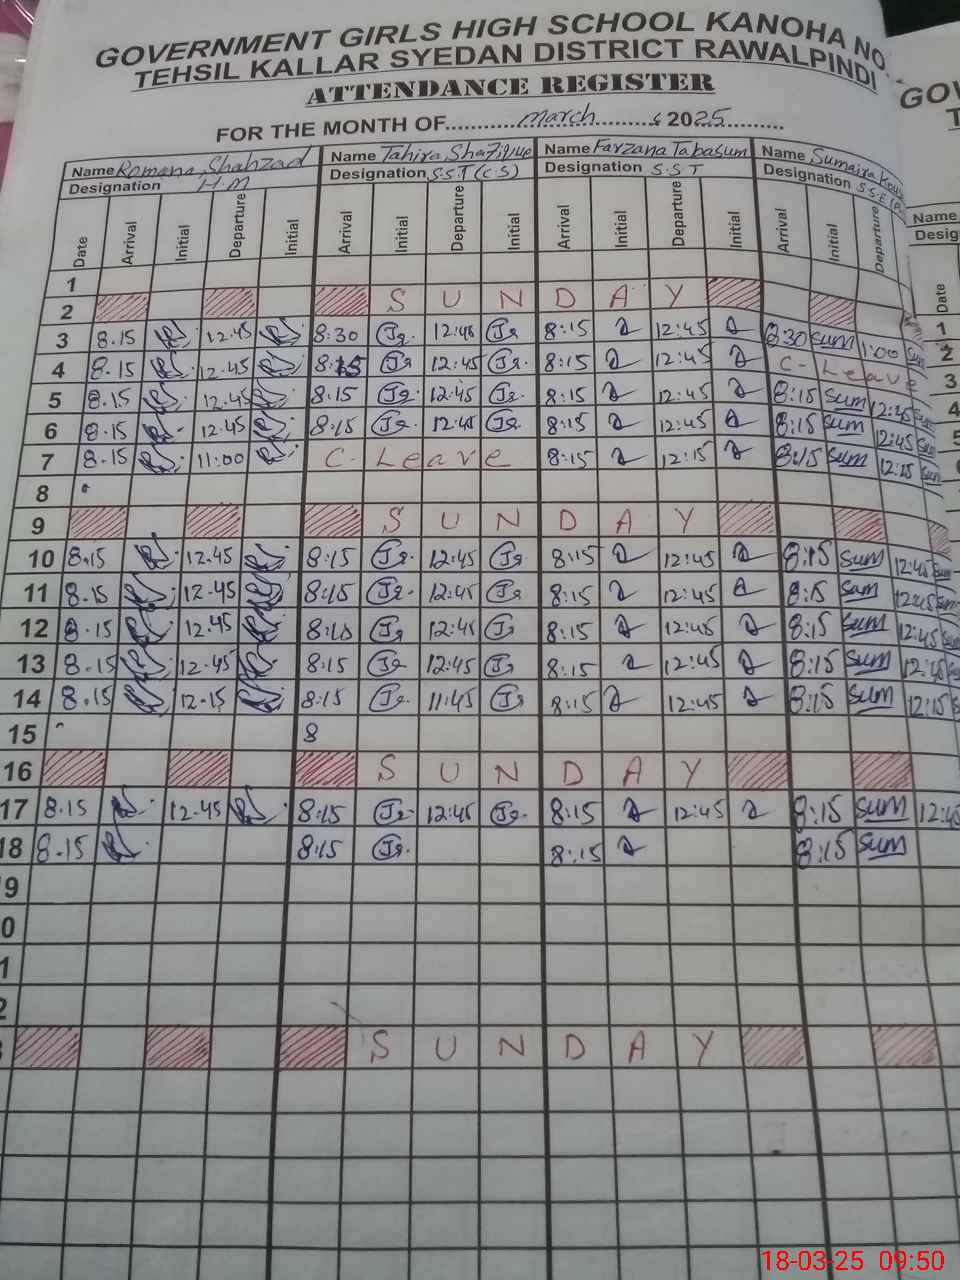 GOVERNMENT GIRLS HIGH SCHOOL KANOHA NO.
TEHSIL KALLAR SYEDAN DISTRICT RAWALPINDI
ATTENDANCE REGISTER
FOR THE MONTH OF March 2025
Name Romana Shahzad Name Tahira Shafique Name Farzana Tabasum Name Sumaira
Designation H.M Designation S.S.T (C.S) Designation S.S.T Designation
Date Arrival Initial Departure Initial Arrival Initial Departure Initial Arrival Initial Departure Initial Arrival Initial Departure
1
2 S U N D A Y
3 8.15 12.45 8:30 12:45 8:15 12:45 8:30 sum 1:00 sum
4 8.15 12.45 8:15 12:45 8:15 12:45 C- Leave
5 8.15 12.45 8:15 12:45 8:15 12:45 8:15 sum 12:45 sum
6 8.15 12.45 8:15 12:45 8:15 12:45 8:15 sum 12:45 sum
7 8.15 11:00 C- Leave 8:15 12:15 8:15 sum 12:15 sum
8
9 S U N D A Y
10 8.15 12.45 8:15 12:45 8:15 12:45 8:15 sum 12:45 sum
11 8.15 12.45 8:15 12:45 8:15 12:45 8:15 sum 12:45 sum
12 8.15 12.45 8:15 12:45 8:15 12:45 8:15 sum 12:45
13 8.15 12.45 8:15 12:45 8:15 12:45 8:15 sum 12:45
14 8.15 12.15 8:15 11:45 8:15 12:45 8:15 sum 12:15
15 8
16 S U N D A Y
17 8.15 12.45 8:15 12:45 8:15 12:45 8:15 sum 12:45
18 8.15 8:15 8:15 8:15 sum
9
0
1
2
S U N D A Y
GOV
Name
Desig
Date
1
2
3
4
5
18-03-25 09:50